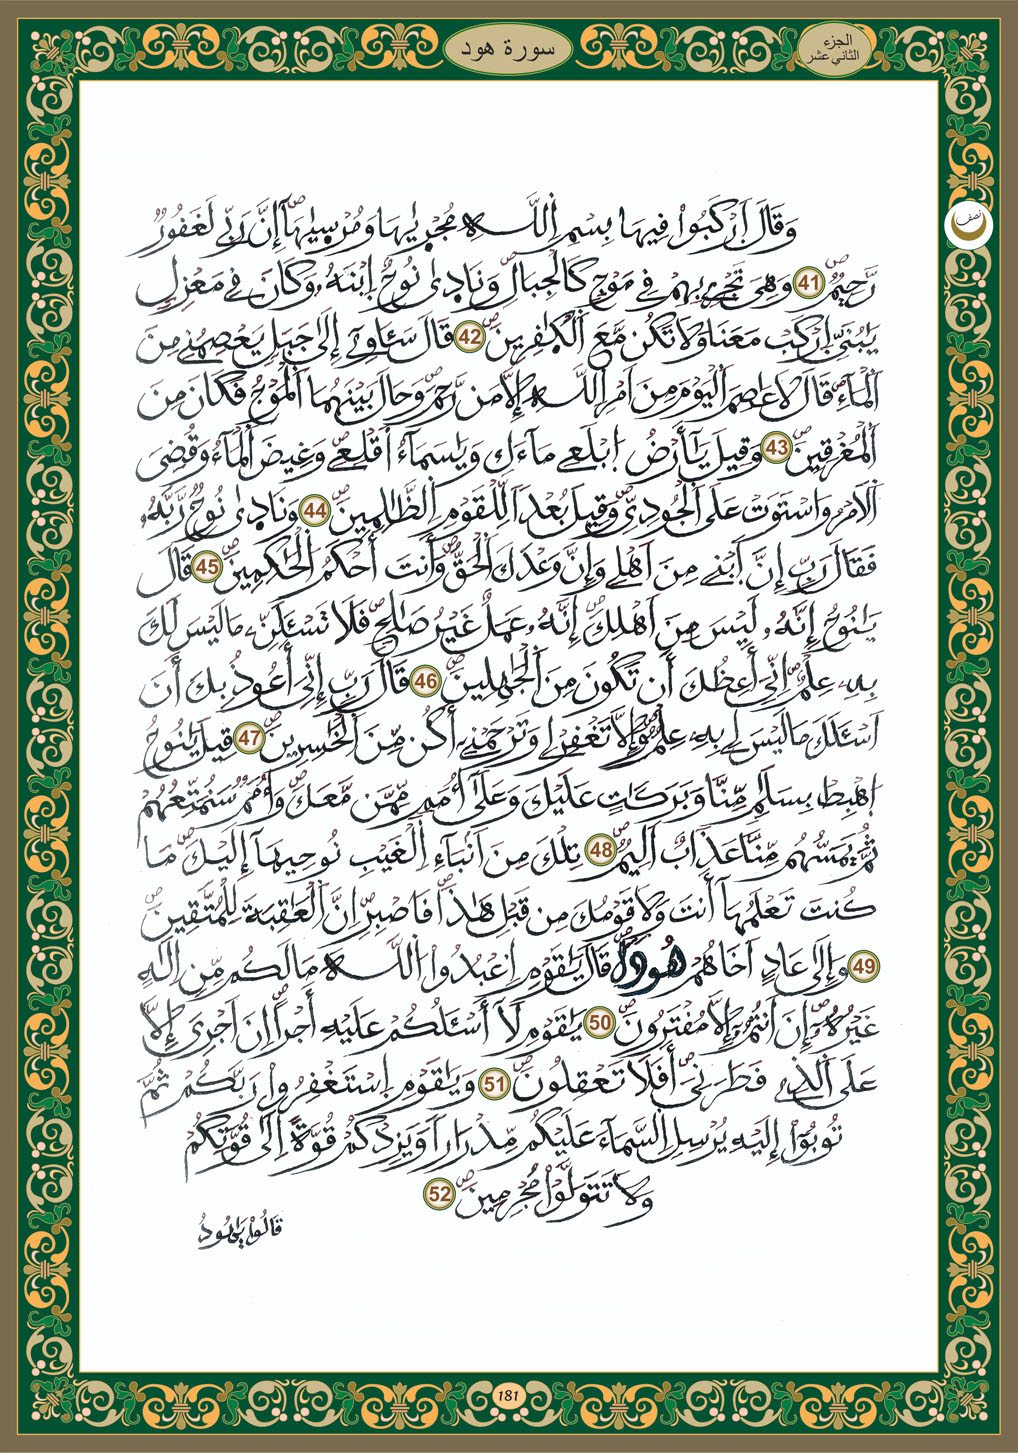 سورة هود
الجزء
الثاني عشر
نصف
وَقَالَ اَرْكَبُواْ فِيهَا بِسْمِ اِللَّهِ مُجْر۪ىٰهَا وَمُرْسىٰهَآ إِنَّ رَبِّي لَغَفُورٞ
رَّحِيمٞ 41 وَهِيَ تَجْرِے بِهِمْ فِے مَوْجٖ كَالْجِبَالِ وَنَاد۪ىٰ نُوحٌ اِبْنَهُۥ وَكَانَ فِے مَعْزِلٖ
يَٰبُنَيِّ اِرْكَب مَّعَنَا وَلَا تَكُن مَّعَ اَلْكٰ۪فِرِينَ 42 قَالَ سَـَٔاوِےٓ إِلَىٰ جَبَلٖ يَعْصِمُنِے مِنَ
اَلْمَآءِ قَالَ لَا عَاصِمَ اَلْيَوْمَ مِنَ اَمْرِ اِللَّهِ إِلَّا مَن رَّحِمَ وَحَالَ بَيْنَهُمَا اَلْمَوْجُ فَكَانَ مِنَ
اَلْمُغْرَقِينَ 43 وَقِيلَ يَٰٓأَرْضُ اُ۪بْلَعِے مَآءَكِ وَيَٰسَمَآءُ اَقْلِعِے وَغِيضَ اَلْمَآءُ وَقُضِيَ
اَلَامْرُ وَاسْتَوَتْ عَلَى اَلْجُودِيِّ وَقِيلَ بُعْداٗ لِّلْقَوْمِ اِلظَّٰلِمِينَ 44 وَنَاد۪ىٰ نُوحٞ رَّبَّهُۥ
فَقَالَ رَبِّ إِنَّ اَبْنِے مِنَ اَهْلِے وَإِنَّ وَعْدَكَ اَلْحَقُّ وَأَنتَ أَحْكَمُ اَلْحَٰكِمِينَ 45 قَالَ
يَٰنُوحُ إِنَّهُۥ لَيْسَ مِنَ اَهْلِكَ إِنَّهُۥ عَمَلٌ غَيْرُ صَٰلِحٖ فَلَا تَسْـَٔلَنِّۦ مَا لَيْسَ لَكَ
بِهِۦ عِلْمٌ اِنِّيَ أَعِظُكَ أَن تَكُونَ مِنَ اَلْجَٰهِلِينَ 46 قَالَ رَبِّ إِنِّيَ أَعُوذُ بِكَ أَنَ
اَسْـَٔلَكَ مَا لَيْسَ لِے بِهِۦ عِلْمٞ وَإِلَّا تَغْفِرْ لِے وَتَرْحَمْنِےٓ أَكُن مِّنَ اَلْخَٰسِرِينَ 47 قِيلَ يَٰنُوحُ
اُ۪هْبِطْ بِسَلَٰمٖ مِّنَّا وَبَرَكَٰتٍ عَلَيْكَ وَعَلَىٰٓ أُمَمٖ مِّمَّن مَّعَكَ وَأُمَمٞ سَنُمَتِّعُهُمْ
ثُمَّ يَمَسُّهُم مِّنَّا عَذَابٌ اَلِيمٞ 48 تِلْكَ مِنَ اَنۢبَآءِ اِلْغَيْبِ نُوحِيهَآ إِلَيْكَ مَا
كُنتَ تَعْلَمُهَآ أَنتَ وَلَا قَوْمُكَ مِن قَبْلِ هَٰذَا فَاصْبِرِ اِنَّ اَلْعَٰقِبَةَ لِلْمُتَّقِينَ
49 وَإِلَىٰ عَادٍ اَخَاهُمْ هُوداٗ قَالَ يَٰقَوْمِ اِ۟عْبُدُواْ اُللَّهَ مَا لَكُم مِّنِ اِلَٰهٍ
غَيْرُهُۥٓ إِنَ اَنتُمُۥٓ إِلَّا مُفْتَرُونَ 50 يَٰقَوْمِ لَآ أَسْـَٔلُكُمْ عَلَيْهِ أَجْراً اِنَ اَجْرِيَ إِلَّا
عَلَى اَلذِے فَطَرَنِيَ أَفَلَا تَعْقِلُونَ 51 وَيَٰقَوْمِ اِ۪سْتَغْفِرُواْ رَبَّكُمْ ثُمَّ
تُوبُوٓاْ إِلَيْهِ يُرْسِلِ اِلسَّمَآءَ عَلَيْكُم مِّدْرَاراٗ وَيَزِدْكُمْ قُوَّةً اِلَىٰ قُوَّتِكُمْ
وَلَا تَتَوَلَّوْاْ مُجْرِمِينَ 52
قَالُواْ يَٰهُودُ
181